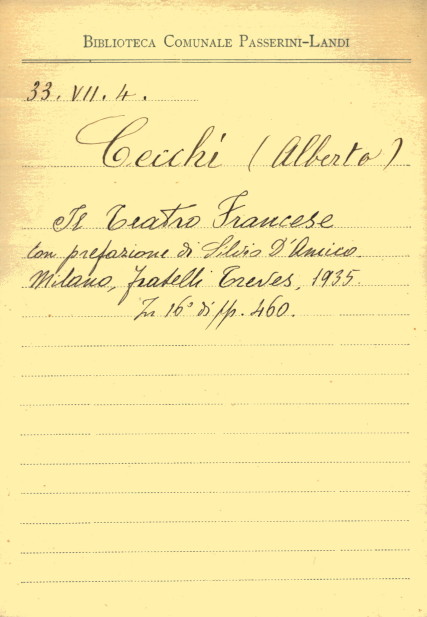 BIBLIOTECA COMUNALE PASSERINI-LANDI
33. VII. 4.
Cecchi (Alberto)
Il Teatro Francese
Con prefazione di Silvio D'Amico
Milano, fratelli Treves, 1935.
In 16° di pp. 460.